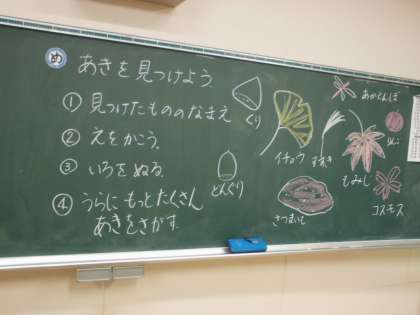 め あきを見つけよう。
① 見つけたもののなまえ
② えをかこう。
③ いろをぬる。
④ うらにもっとたくさん
あきをさがす。
くり
どんぐり
イチョウ
すすき
さつまいも
あかとんぼ
りんご
もみじ
コスモス